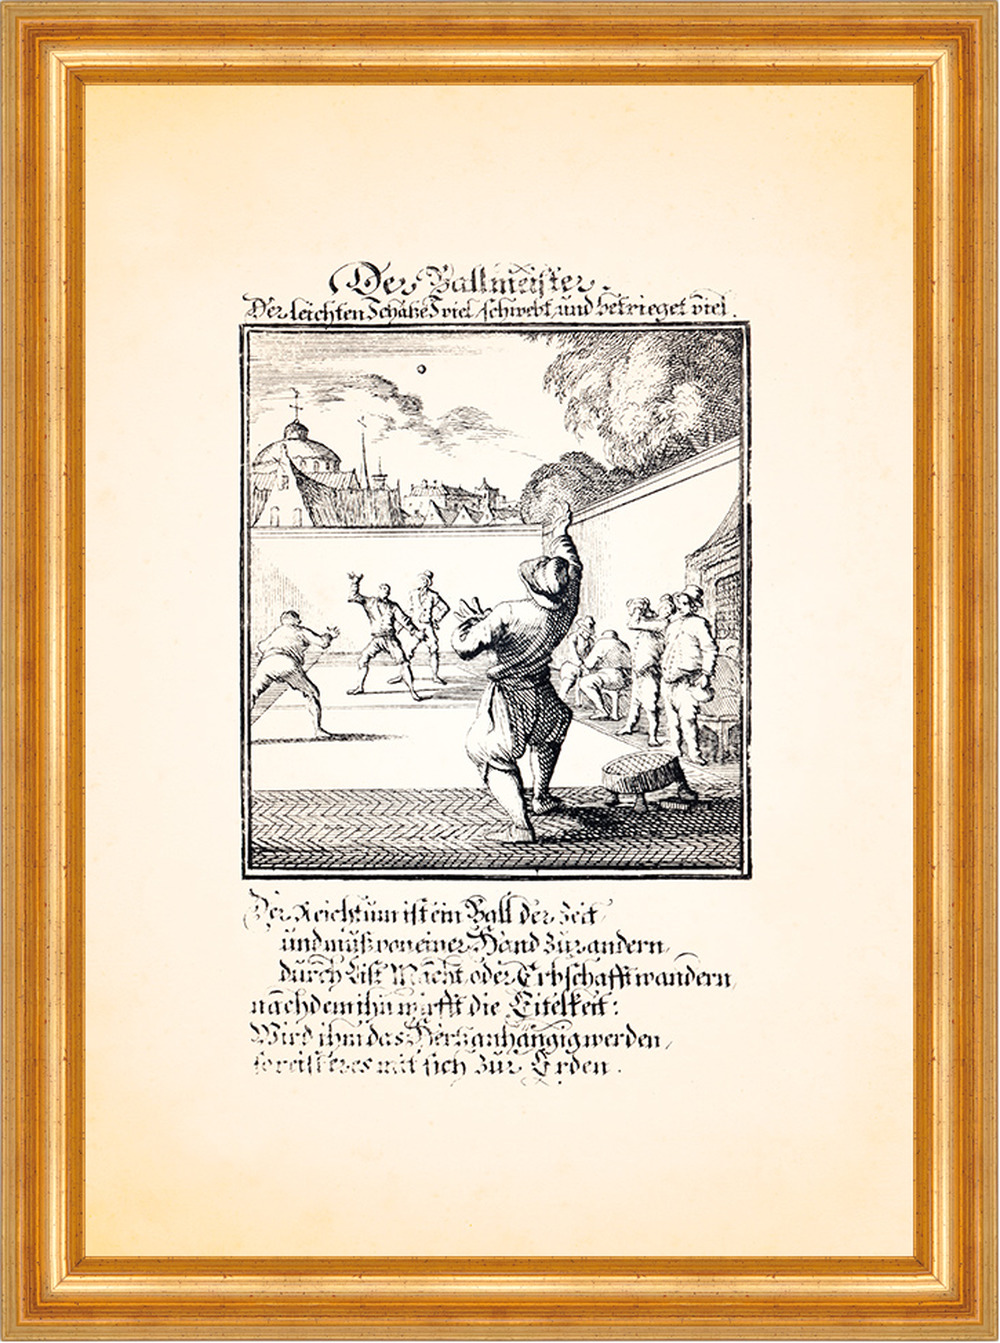 Der Ballmeister.
Der leichten Schätze Spiel / schwebt und betrieget viel.
Der Reichtum ist ein Ball der Zeit /
und muß von einer Hand zur andern,
durch List Macht, oder Erbschafft wandern,
nachdem ihn wirfft die Eitelkeit:
Wird ihm das Hertz anhängig werden /
so reist er es mit sich zur Erden.